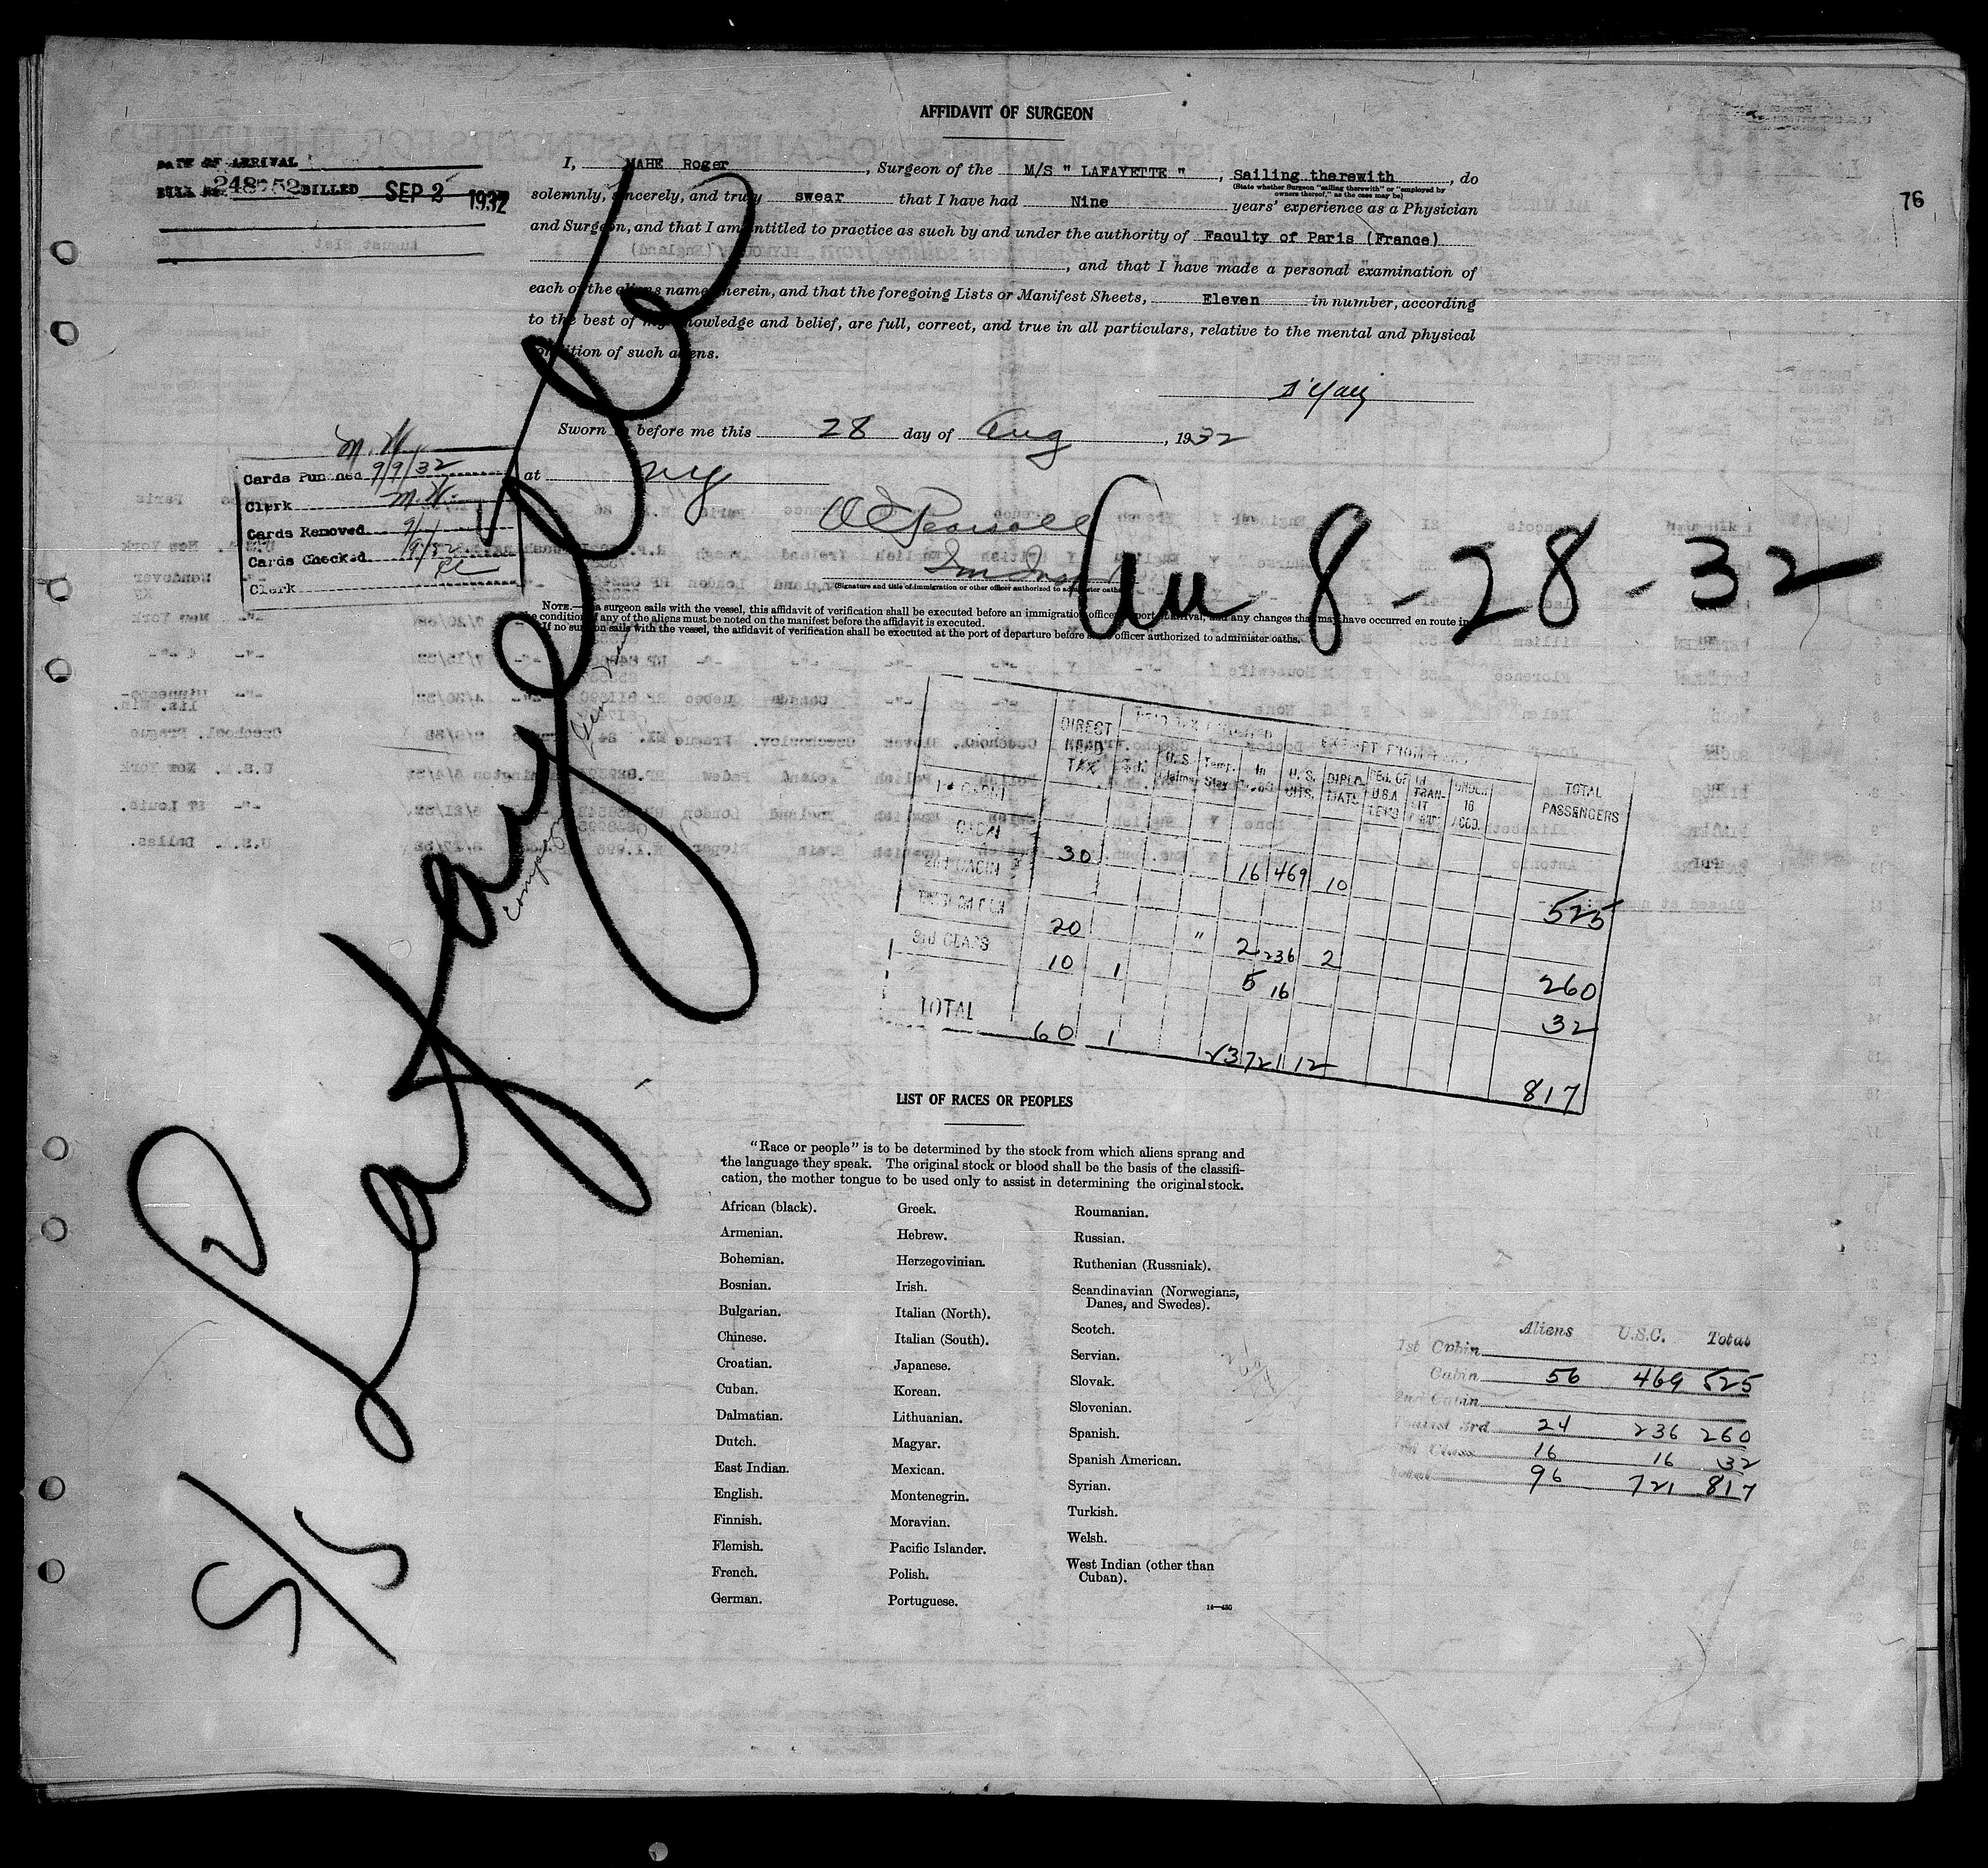 AFFIDAVIT OF SURGEON
DATE OF ARRIVAL
BILL NO. BILLED SEP 2 1932
76
I, MAHE Roger, Surgeon of the M/S " LAFAYETTE ", Sailing therewith, do
(State whether Surgeon "sailing therewith" or "employed by
owners thereof," as the case may be)
solemnly, sincerely, and truly swear that I have had Nine years' experience as a Physician
and Surgeon, and that I am entitled to practice as such by and under the authority of Faculty of Paris (France)
, and that I have made a personal examination of
each of the aliens named herein, and that the foregoing Lists or Manifest Sheets, Eleven in number, according
to the best of my knowledge and belief, are full, correct, and true in all particulars, relative to the mental and physical
condition of such aliens.
Sworn to before me this 28 day of Aug, 1932
at NY
M.K.
Cards Punched 9/9/32
Clerk M.K.
Cards Removed 9/
Cards Checked 9/9/32
Clerk
OE Pearsall
(Signature and title of immigration or other officer authorized to administer oaths)
Arr 8-28-32
NOTE.—If a surgeon sails with the vessel, this affidavit of verification shall be executed before an immigration officer at port of arrival, and any changes that may have occurred en route in
the condition of any of the aliens must be noted on the manifest before the affidavit is executed.
If no surgeon sails with the vessel, the affidavit of verification shall be executed at the port of departure before an officer authorized to administer oaths.
S/S Lafayette
DIRECT HEAD TAX
U.S. Temp. Stay In Trans U.S. CITS. DIPLOMATS RES. OF U.S.A. IN TRANSIT UNDER 16 ACCO. TOTAL PASSENGERS
1st CABIN
CABIN 30 16 469 10 525
2nd CABIN
TOURIST 3rd CABIN 20 " 2 236 2 260
3rd CLASS 10 1 5 16 32
TOTAL 60 1 23 721 12 817
LIST OF RACES OR PEOPLES
"Race or people" is to be determined by the stock from which aliens sprang and
the language they speak. The original stock or blood shall be the basis of the classifi-
cation, the mother tongue to be used only to assist in determining the original stock.
African (black).
Armenian.
Bohemian.
Bosnian.
Bulgarian.
Chinese.
Croatian.
Cuban.
Dalmatian.
Dutch.
East Indian.
English.
Finnish.
Flemish.
French.
German.
Greek.
Hebrew.
Herzegovinian.
Irish.
Italian (North).
Italian (South).
Japanese.
Korean.
Lithuanian.
Magyar.
Mexican.
Montenegrin.
Moravian.
Pacific Islander.
Polish.
Portuguese.
Roumanian.
Russian.
Ruthenian (Russniak).
Scandinavian (Norwegians,
Danes, and Swedes).
Scotch.
Servian.
Slovak.
Slovenian.
Spanish.
Spanish American.
Syrian.
Turkish.
Welsh.
West Indian (other than
Cuban).
Aliens U.S.C. Total
1st Cabin
Cabin 56 469 525
2nd Cabin
Tourist 3rd 24 236 260
3rd Class 16 16 32
Total 96 721 817